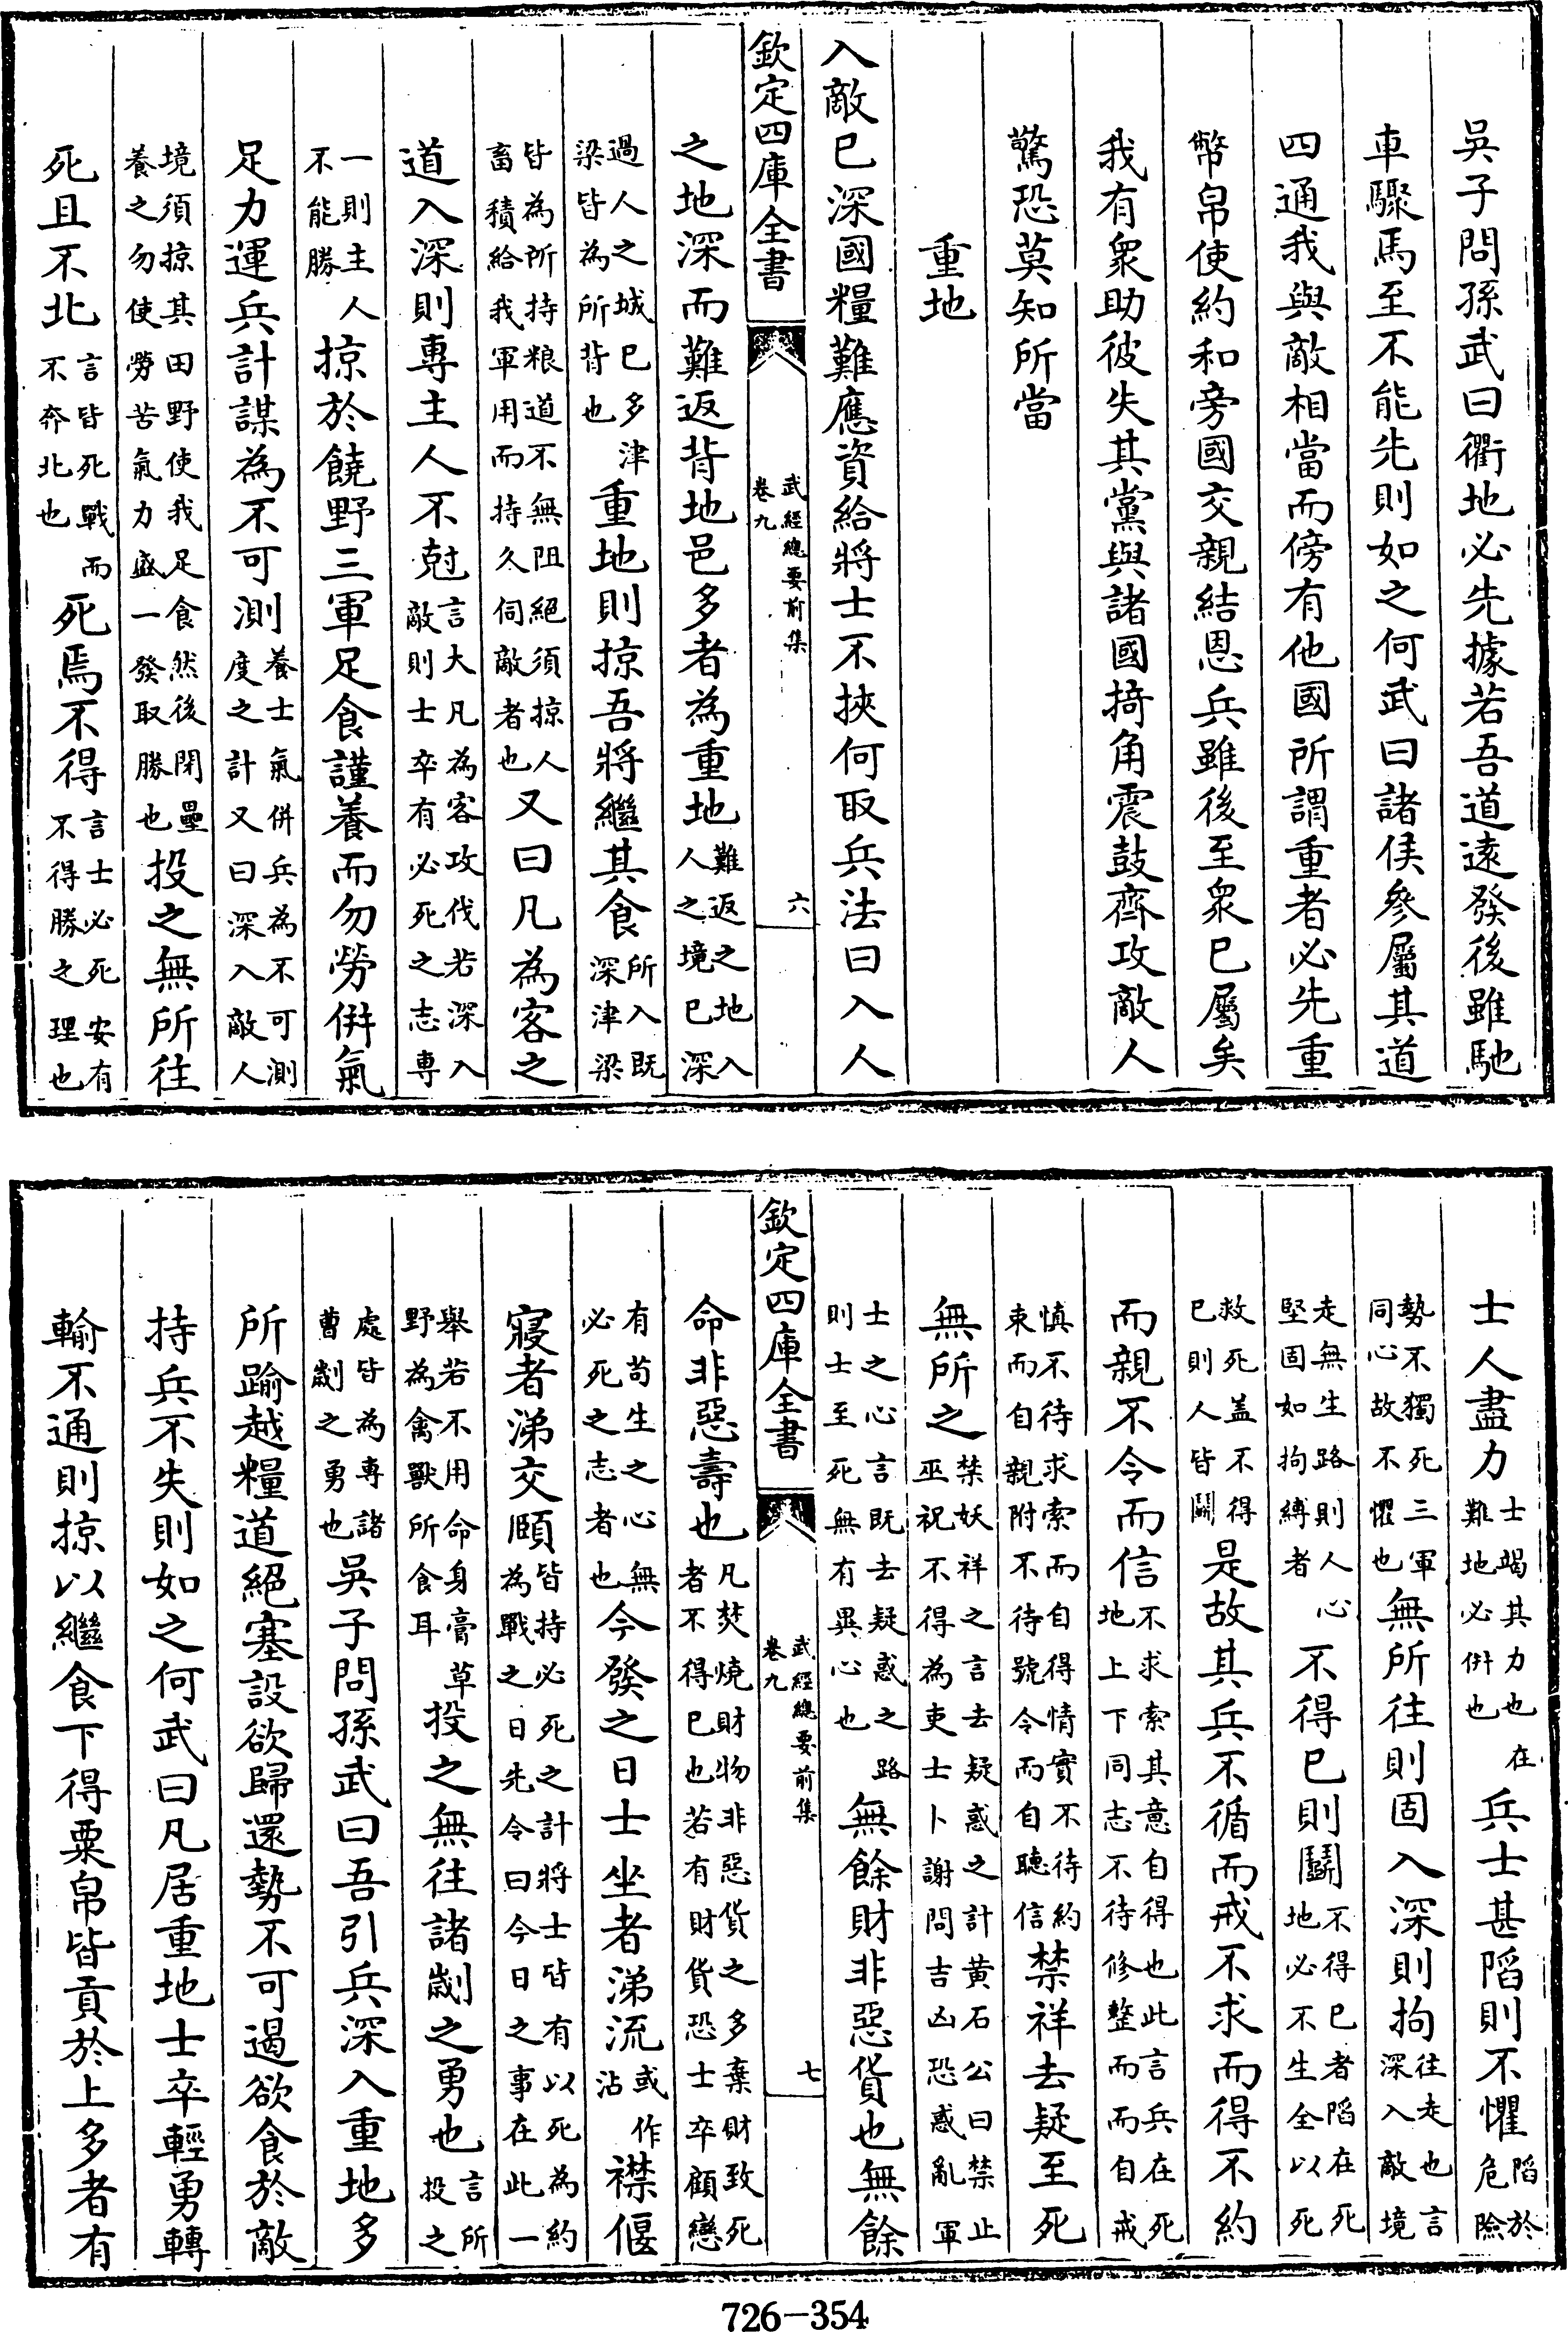 吳子問孫武曰衢地必先據若吾道遠發後雖馳
車驟馬至不能先則如之何武曰諸侯參屬其道
四通我與敵相當而傍有他國所謂重者必先重
幣帛使約和旁國交親結恩兵雖後至衆已屬矣
我有衆助彼失其黨與諸國掎角震鼓齊攻敵人
驚恐莫知所當
重地
入敵已深國糧難應資給將士不挾何取兵法曰入人
欽定四庫全書
武經總要前集
卷九
六
之地深而難返背地邑多者為重地難返之地入人之境已深
過人之城已多津梁皆為所背也重地則掠吾將繼其食所入既深津梁
皆為所持粮道不無阻絕須掠人畜積給我軍用而持久伺敵者也又曰凡為客之
道入深則專主人不尅言大凡為客攻伐若深入敵則士卒有必死之志專
一則主人不能勝掠於饒野三軍足食謹養而勿勞併氣
足力運兵計謀為不可測養士氣併兵為不可測度之計又曰深入敵人
境須掠其田野使我足食然後閉壘養之勿使勞苦氣力盛一發取勝也投之無所往
死且不北言皆死戰而不奔北也死焉不得言士必死安有不得勝之理也
士人盡力士竭其力也在難地必併也兵士甚陷則不懼陷於危險
勢不獨死三軍同心故不懼也無所往則固入深則拘往走也言深入敵境
走無生路則人心堅固如拘縛者不得已則鬬不得已者陷在死地必不生全以死
救死盖不得已則人皆鬬是故其兵不循而戒不求而得不約
而親不令而信不求索其意自得也此言兵在死地上下同志不待修整而自戒
慎不待求索而自得情實不待約束而自親附不待號令而自聽信禁祥去疑至死
無所之禁妖祥之言去疑惑之計黄石公曰禁止巫祝不得為吏士卜謝問吉凶恐惑亂軍
士之心言既去疑惑之路則士至死無有異心也無餘財非惡貨也無餘
欽定四庫全書
武經總要前集
卷九
七
命非惡壽也凡焚燒財物非惡貨之多棄財致死者不得已也若有財貨恐士卒顧戀
有苟生之心無必死之志者也今發之日士坐者涕流或作沾襟偃
寢者涕交頤皆持必死之計將士皆有以死為約為戰之日先令曰今日之事在此一
舉若不用命身膏草野為禽獸所食耳投之無往諸劌之勇也言所投之
處皆為專諸曹劌之勇也吳子問孫武曰吾引兵深入重地多
所踰越糧道絕塞設欲歸還勢不可遏欲食於敵
持兵不失則如之何武曰凡居重地士卒輕勇轉
輸不通則掠以繼食下得粟帛皆貢於上多者有
726-354